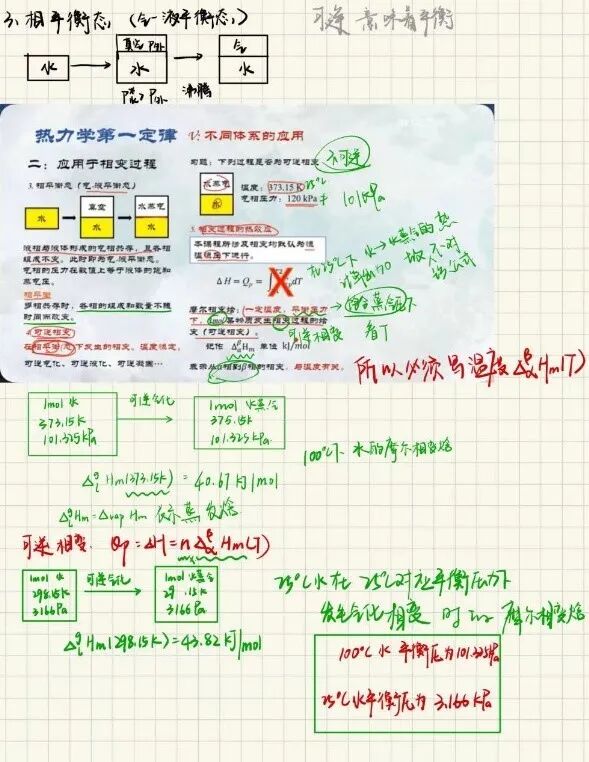 3. 相平衡态 (气-液平衡态)
可逆 意味着平衡
水
真空 P外
水
气
水
沸腾
热力学第一定律 V: 不同体系的应用
二: 应用于相变过程
3. 相平衡态 (气-液平衡态)
水
真空
水
水蒸气
水
液相与液体形成的气相共存，且各相
组成不变。此时即为气-液平衡态。
气相的压力在数值上等于液体的饱和
蒸气压。
相平衡
多相共存时，各相的组成和数量不随
时间而改变。
4. 可逆相变
在相平衡态下发生的相变。温度恒定。
可逆气化、可逆液化、可逆凝固…
问题: 下列过程是否为可逆相变
不可逆
水蒸气
水
温度: 373.15 K
气相压力: 120 kPa ≠ 101kPa
5. 相变过程的热效应
本课程所涉及相变均默认为恒
温恒压下进行。
ΔH = Qp = dT
摩尔相变焓: (一定温度、平衡压力
下，1mol某物质发生相变过程的焓
变 (可逆相变)
可逆相变
看T
记作 Δβα Hm 单位 kJ/mol
表示从α相到β相的相变，与温度有关。
所以必须写温度 Δβα Hm(T)
1mol 水
373.15K
101.325kPa
可逆气化
1mol 水蒸气
373.15K
101.325kPa
100℃下 水的摩尔相变焓
Δgl Hm(373.15K) = 40.67 kJ/mol
Δgl Hm = Δvap Hm 表示蒸发焓
可逆相变. Qp = ΔH = nΔβα Hm(T)
1mol 水
298.15K
3166Pa
可逆气化
1mol 水蒸气
29 .15K
3166Pa
25℃水在 25℃对应平衡压力下
发生气化相变 时的 摩尔相变焓
Δgl Hm(298.15K) = 43.82 kJ/mol
100℃水 平衡压为101.325kPa
25℃水平衡压为 3.166 kPa